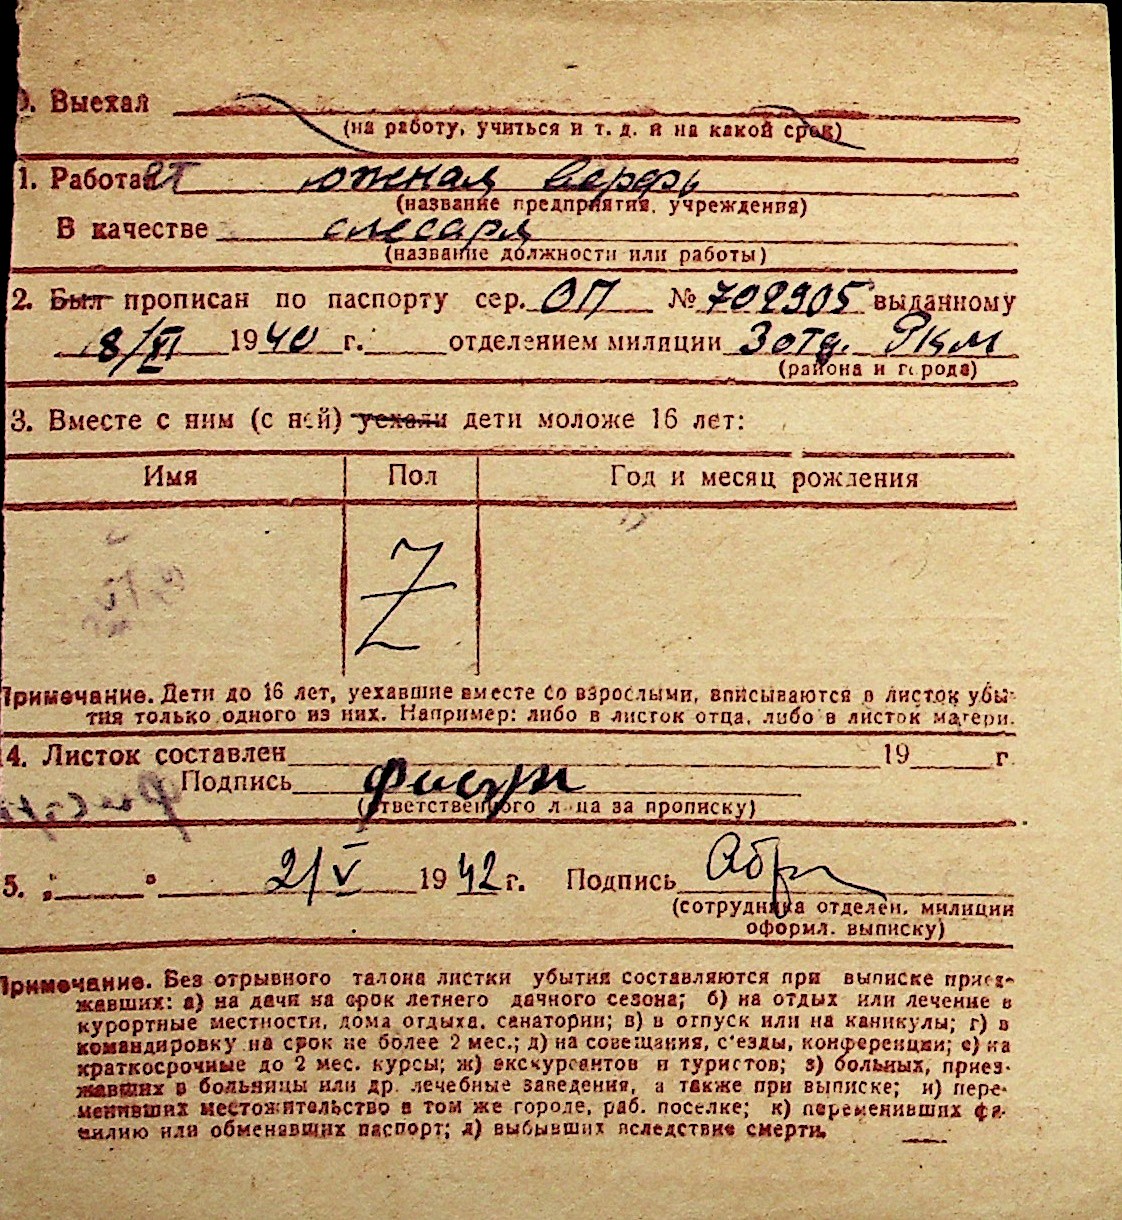 0. Выехал
(на работу, учиться и т. д. и на какой срок)
1. Работает южная верфь
(название предприятия, учреждения)
В качестве слесаря
(название должности или работы)
2. Был прописан по паспорту сер. ОП № 702905 выданному
18/XI 1940 г. отделением милиции 3 отд. РКМ
(района и города)
3. Вместе с ним (с ней) уехали дети моложе 16 лет:
Имя Пол Год и месяц рождения
Z
Примечание. Дети до 16 лет, уехавшие вместе со взрослыми, вписываются в листок убы-
тия только одного из них. Например: либо в листок отца, либо в листок матери.
14. Листок составлен 19 г
Подпись
(ответственного лица за прописку)
5. „ " 2/V 1942 г. Подпись
(сотрудника отделен. милиции
оформл. выписку)
Примечание. Без отрывного талона листки убытия составляются при выписке приез-
жавших: а) на дачи на срок летнего дачного сезона; б) на отдых или лечение в
курортные местности, дома отдыха, санатории; в) в отпуск или на каникулы; г) в
командировку на срок не более 2 мес.; д) на совещания, с'езды, конференции; е) на
краткосрочные до 2 мес. курсы; ж) экскурсантов и туристов; з) больных, приез-
жавших в больницы или др. лечебные заведения, а также при выписке; и) пере-
менивших местожительство в том же городе, раб. поселке; к) переменивших фа-
милию или обменавших паспорт; л) выбывших вследствие смерти.